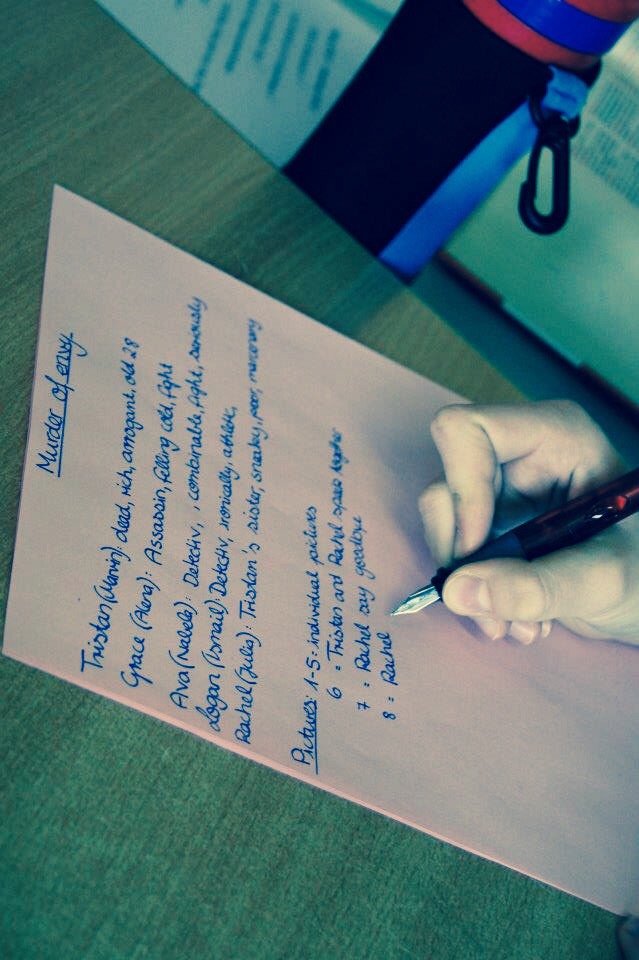 Murder of envy
Tristan (Marvin): dead, rich, arrogant, old 28
Grace (Alena): Assassin, felling cold, fight
Ava (Nabela): Detectiv, , combinable, fight, seriously
Logan (Ismail): Detectiv, ironically, athletic,
Rachel (Julia): Tristan's sister, sneaky, poor, mercenary
Pictures: 1-5: individual pictures
6 = Tristan and Rachel speak together
7 = Rachel say goodbye
8 = Rachel